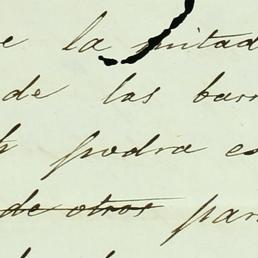 e la mitad
de las barr
podra es
~~de otros~~ par